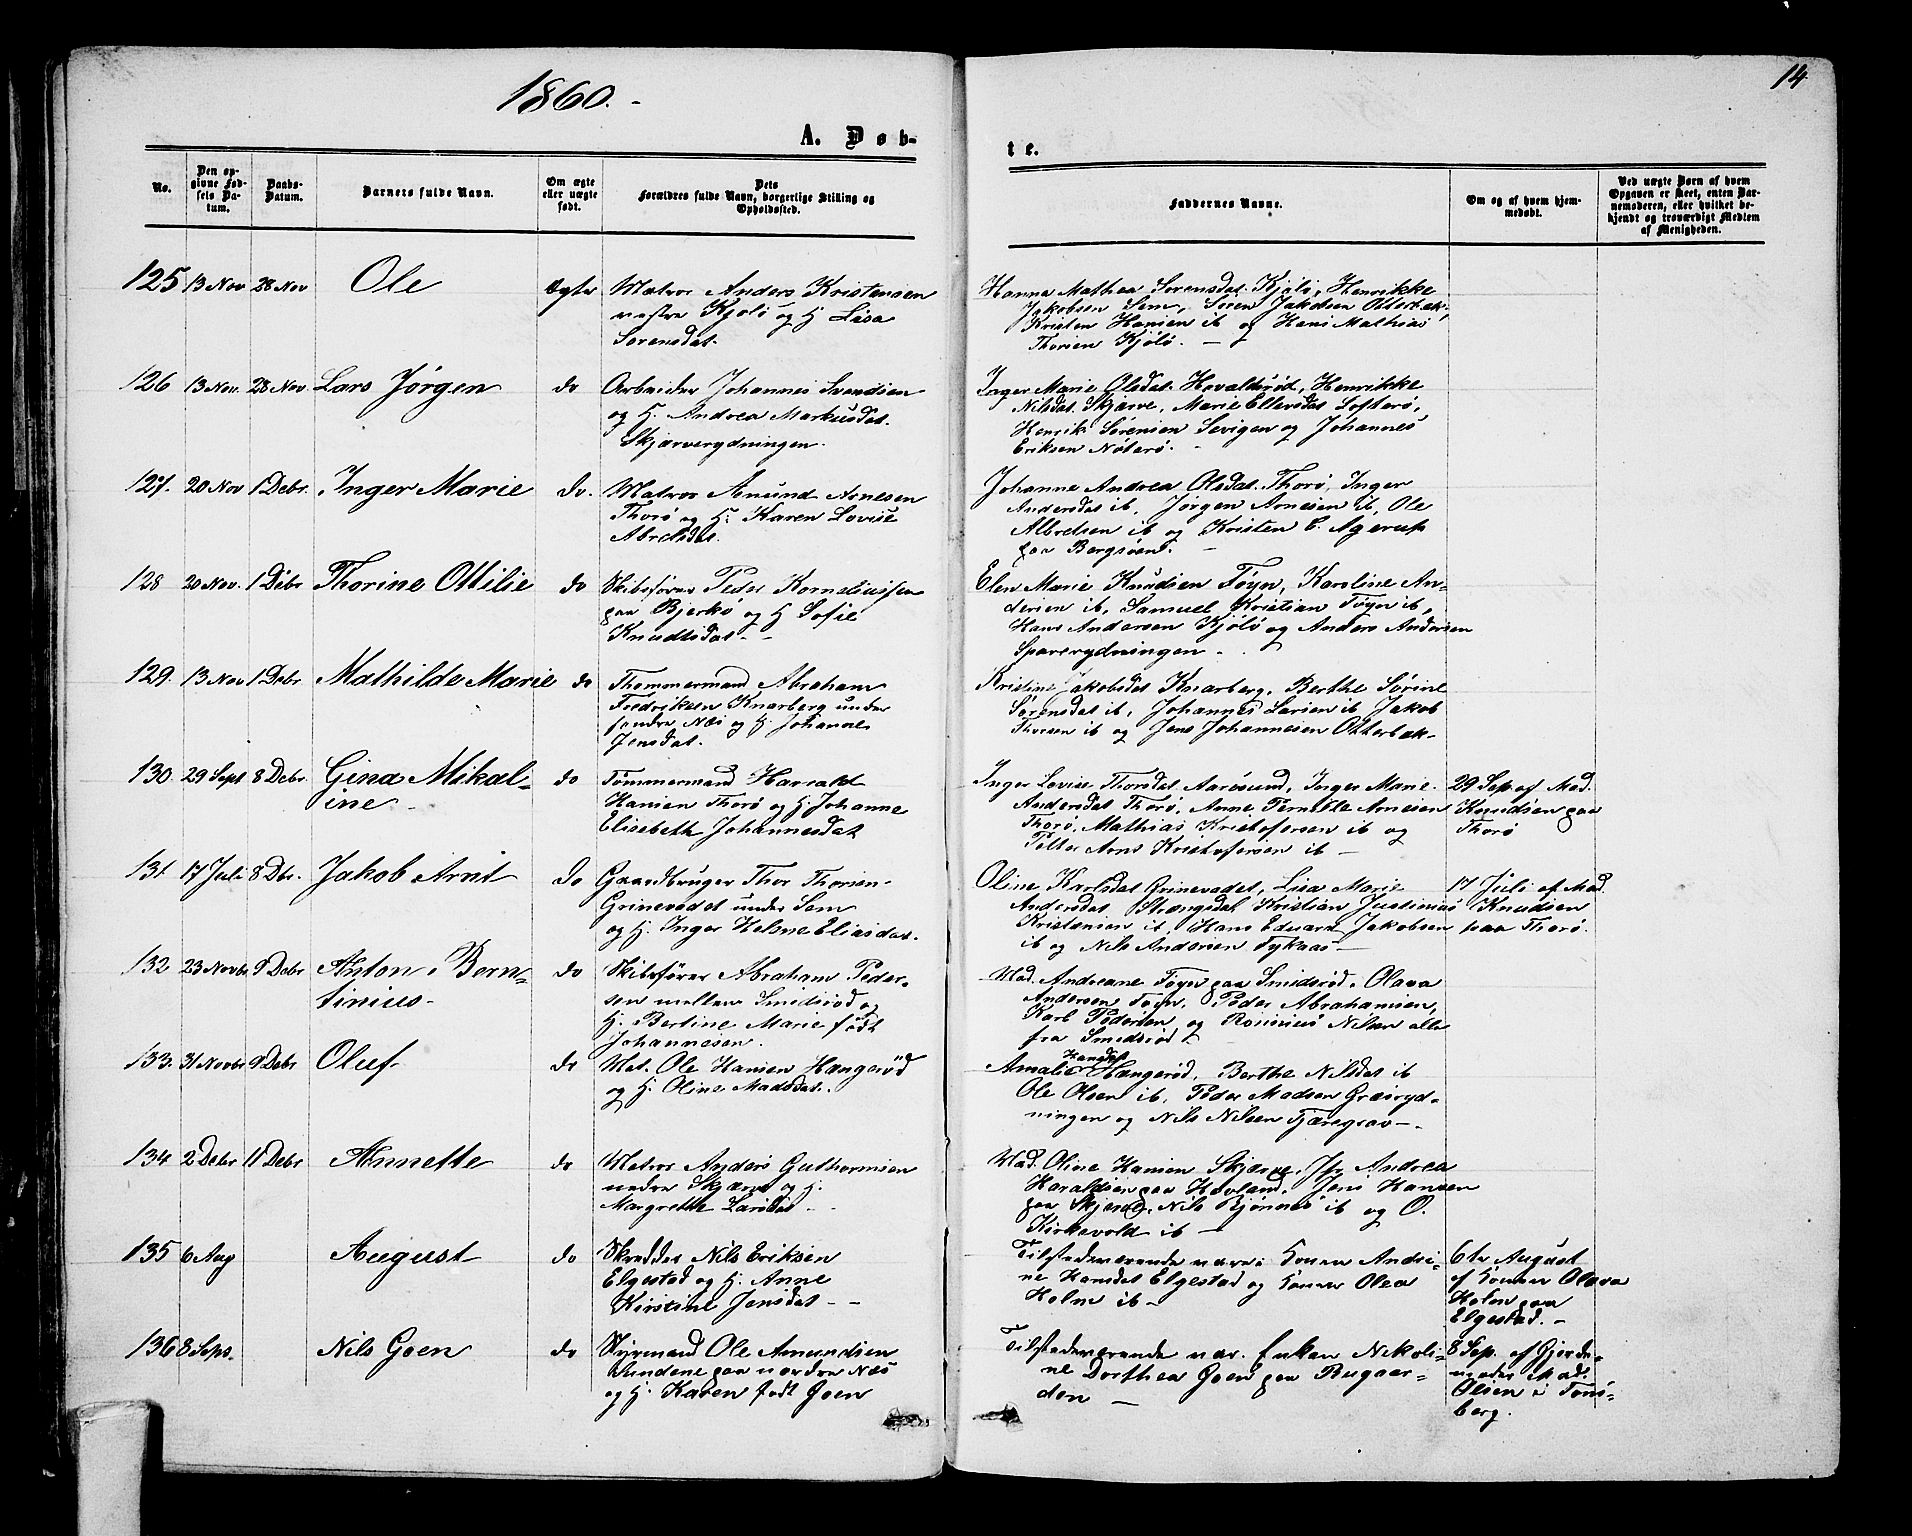 1860.-
14
A. Døb-
te.
No.
Den op-
givne Fød-
sels Da-
tum.
Daabs-
Datum.
Barnets fulde Navn.
Om ægte
eller uægte
født.
Dets
Forældres fulde Navn, borgerlige Stilling og
Opholdssted.
Faddernes Navne.
Om og af hvem hjem-
medøbt.
Ved uægte Børn af hvem
Opgaven er skeet, enten Bar-
nemoderen, eller hvilket be-
kjendt og troværdigt Medlem
af Menigheden.
125 13 Nov 28 Nov Ole ægte Matros Anders Kristensen
vestre Kjølø og H. Lisa
Sørensdat.
Hanna Mathea Sørensdat Kjølø, Henrikke
Jakobsen Sem, Sören Jakobsen Otterbæk,
Kristen Hansen ib og Hans Mathias
Thorsen Kjølø. -
126 13 Nov. 28 Nov. Lars Jørgen do Arbeider Johannes Svendsen
og H. Andrea Markusdat.
Skjærverydningen.
Inger Marie Olsdat. Hovaldsrød, Henrikke
Nilsdat Skjærve, Marie Ellevsdat Lofterø,
Henrik Sørensen Sevigen og Johannes
Eriksen Nøterø. -
127. 20 Nov 1 Debr. Inger Marie do. Matros Amund Arnesen
Thorø og H. Karen Lovise
Abrelsdat.
Johanne Andrea Olsdat. Thorø, Inger
Andersdat ib, Jørgen Arnesen ib, Ole
Albretsen ib og Kristen C. Agerup
paa Bergsøend. -
128 20 Nov. 1 Debr Thorine Ottilie do Skibsfører Peder Korneliussen
paa Bjerkø og H Sofie
Knudtsdat - -
Elen Marie Knudsen Føyn, Karoline An-
dersen ib, Samuel Kristian Føyn ib,
Hans Andersen Kjølø og Anders Andersen
Sparerydningen -
129. 13 Nov 1 Debr Mathilde Marie do Thømmermand Abraham
Fredriksen Knarberg under
søndre Næs og H. Johanne
Jensdat.
Kristine Jakobsdat Knarberg, Berthe Sørine
Sørensdat ib, Johannes Larsen ib Jakob
Thorsen ib og Jens Johannesen Otterbæk-
130. 29 Sept 8 Debr. Gina Mikal-
ine - do Tømmermand Harald
Hansen Thorø og H. Johanne
Elisabeth Johannesdat
Inger Lovise Thorsdat Aarøsund, Inger Marie
Andersdat Thorø, Anne Pernille Arnesen
Thorø, Mathias Kristofersen ib og
Petter Arns Kristofersen ib -
29 Sep af Mad.
Knudsen paa
Thorø
131 17 Juli 8 Dbr. Jakob Arnt do Gaardbruger Thor Thorsen
Grinevødet under Sem
og H. Inger Helene Eliasdat.
Oline Karlsdat Grinevødet, Lisa Marie
Andersdat Stængsdal Kristian Justinius
Kristensen ib, Hans Edvard Jakobsen
ib og Nils Andersen Tykaas -
17 Juli af Mad.
Knudsen
paa Thorø.
132 23 Novbr 9 Debr Anton Bern-
tinius - do Skibsfører Abraham Peder-
sen mellem Smidsrød og
H. Bertine Marie født
Johannesen.
Mad. Andreane Føyn paa Smidsrød, Olava
Andersen Føyn, Peder Abrahamsen,
Karl Pedersen og Rasmus Nilsen alle
fra Smidsrød
133. 31 Novbr 9 Debr Oluf do Mat. Ole Hansen Hængerød
og H. Oline Madsdat.
Hansdat
Amalie Hængerød, Berthe Nilsdat ib
Ole Olsen ib, Peder Madsen Græsryd-
ningen og Nils Nilsen Tjæregrav -
134 2 Debr 11 Debr Annette do Matros Anders Guthormsen
nedre Skjærve og H.
Margrethe Larsdat - -
Mad. Oline Hansen Skjærve, Jfr Andrea
Haraldsen paa Hovland, Jens Hansen
paa Skjerve, Nils Bjønnes ib og O.
Kirkevold ib -
135 6 Aug August do Skredder Nils Eriksen
Elgestad og H. Anne
Kirstine Jensdat - -
Tilstedeværende vare: Konen Andri-
ne Hansdat Elgestad og Konen Olea
Holm ib -
6te August
af Konen Olava
Holm paa
Elgestad. -
136 8 Sept. Nils Goen do Styrmand Ole Amundsen
Vindene paa nordre Næs
og H. Karen født Goen
Tilstedeværende var. Enken Nikoli-
ne Dorthea Goen paa Bugaar-
den -
8 Sep. af Gjorde-
moder Mad.
Olsen i Tøns-
berg.